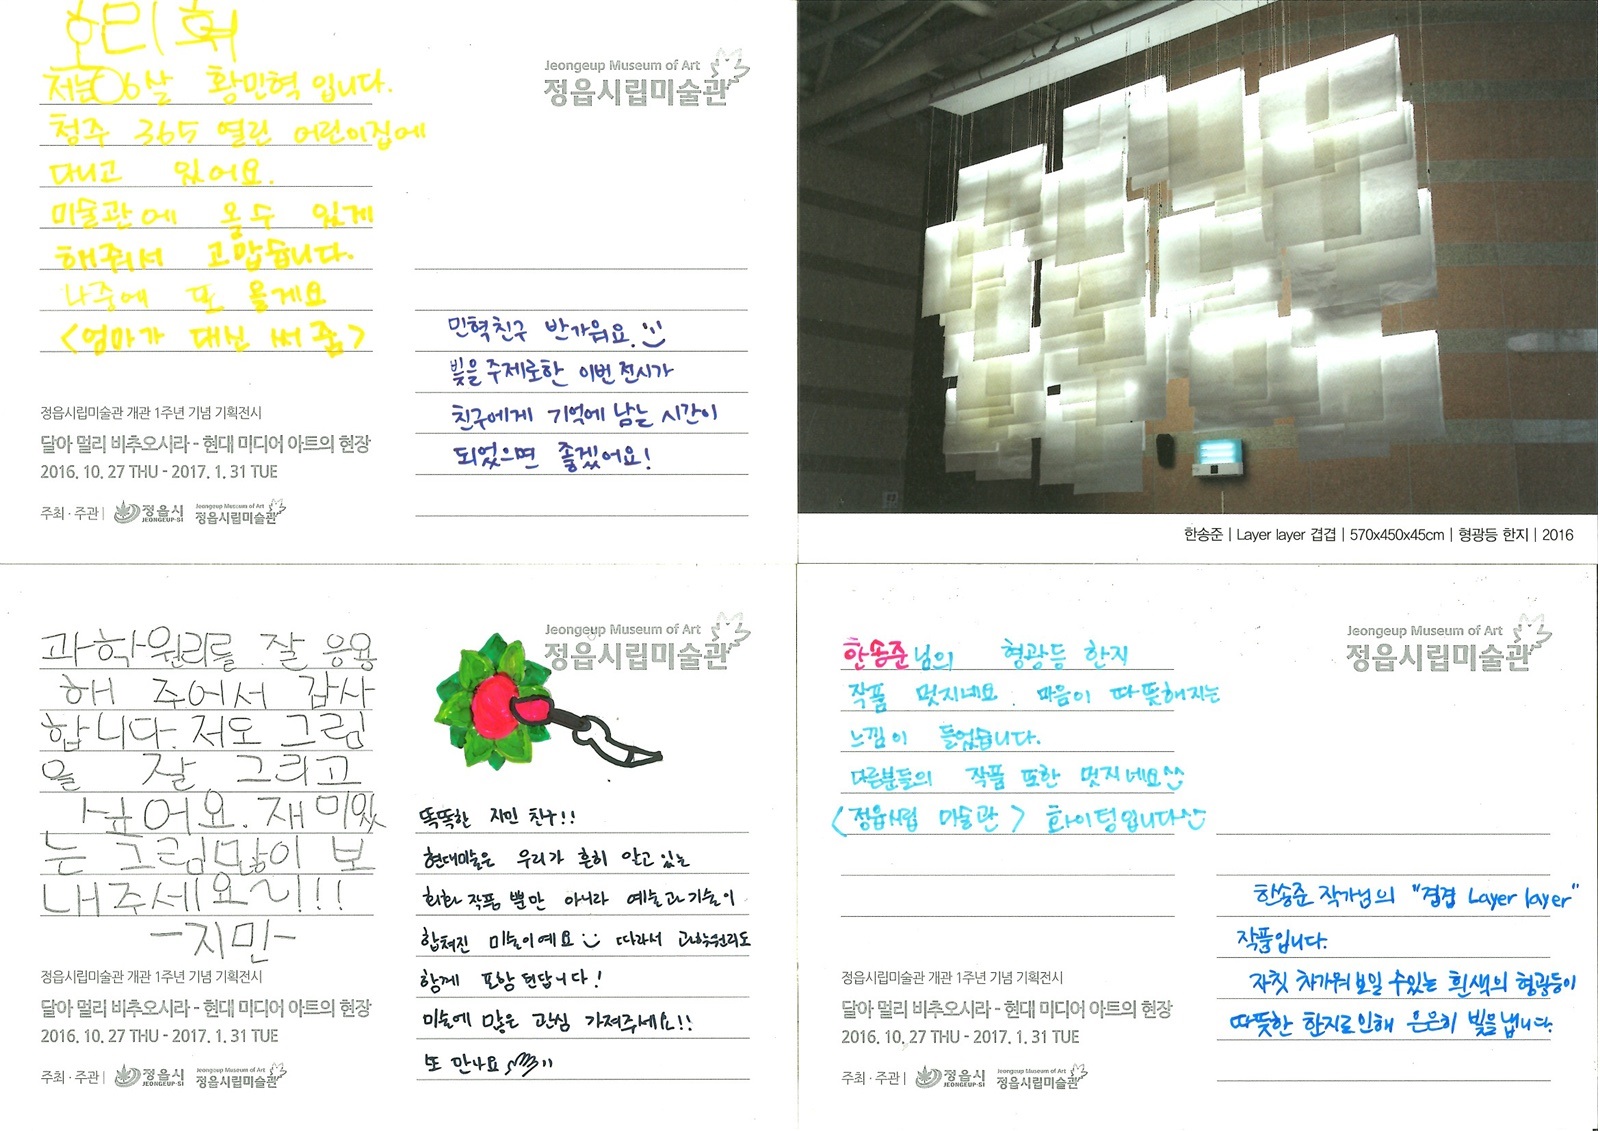 저는 6살 황민혁 입니다.
청주 365 열린 어린이집에
다니고 있어요.
미술관에 올수 있게
해줘서 고맙습니다.
나중에 또 올게요
<엄마가 대신 써 줌>
Jeongeup Museum of Art
정읍시립미술관
민혁친구 반가워요.
빛을 주제로한 이번 전시가
친구에게 기억에 남는 시간이
되었으면 좋겠어요!
정읍시립미술관 개관 1주년 기념 기획전시
달아 멀리 비추오시라 - 현대 미디어 아트의 현장
2016. 10. 27 THU - 2017. 1. 31 TUE
주최 · 주관 | 정읍시 JEONGEUP-SI Jeongeup Museum of Art 정읍시립미술관
한송준 | Layer layer 겹겹 | 570x450x45cm | 형광등 한지 | 2016
과학원리를 잘 응용
해 주어서 감사
합니다. 저도 그림
을 잘 그리고
싶어요. 재미있
는 그림많이 보
내주세요~!!!
-지민-
Jeongeup Museum of Art
정읍시립미술관
똑똑한 지민 친구!!
현대미술은 우리가 흔히 알고 있는
회화 작품 뿐만 아니라 예술과 기술이
합쳐진 미술이예요 따라서 과학원리도
함께 포함 된답니다!
미술에 많은 관심 가져주세요!!
또 만나요
정읍시립미술관 개관 1주년 기념 기획전시
달아 멀리 비추오시라 - 현대 미디어 아트의 현장
2016. 10. 27 THU - 2017. 1. 31 TUE
주최 · 주관 | 정읍시 JEONGEUP-SI Jeongeup Museum of Art 정읍시립미술관
한송준님의 형광등 한지
작품 멋지네요. 마음이 따뜻해지는
느낌이 들었습니다.
다른분들의 작품 또한 멋지네요^^
<정읍시립 미술관> 화이팅입니다^^
Jeongeup Museum of Art
정읍시립미술관
한송준 작가님의 "겹겹 Layer layer"
작품입니다.
자칫 차가워보일 수있는 흰색의 형광등이
따뜻한 한지로인해 은은히 빛을냅니다.
정읍시립미술관 개관 1주년 기념 기획전시
달아 멀리 비추오시라 - 현대 미디어 아트의 현장
2016. 10. 27 THU - 2017. 1. 31 TUE
주최 · 주관 | 정읍시 JEONGEUP-SI Jeongeup Museum of Art 정읍시립미술관